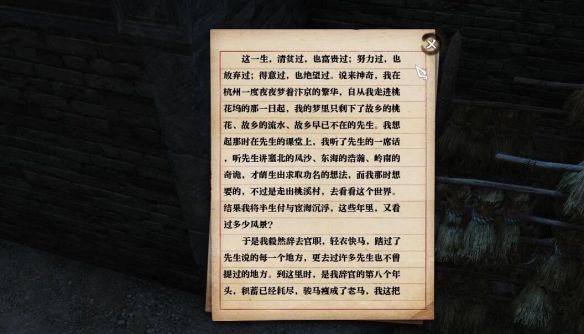 这一生，清贫过，也富贵过；努力过，也
放弃过；得意过，也绝望过。说来神奇，我在
杭州一度夜夜梦着汴京的繁华，自从我走进桃
花坞的那一日起，我的梦里只剩下了故乡的桃
花、故乡的流水、故乡早已不在的先生。我想
起那时在先生的课堂上，我听了先生的一席话
，听先生讲塞北的风沙、东海的浩瀚、岭南的
奇诡，才萌生出求取功名的想法，而我那时想
要的，不过是走出桃溪村，去看看这个世界。
结果我将半生付与宦海沉浮，这些年里，又看
过多少风景？
于是我毅然辞去官职，轻衣快马，踏过了
先生说的每一个地方，更去过许多先生也不曾
提过的地方。到这里时，是我辞官的第八个年
头，积蓄已经耗尽，骏马瘦成了老马，我这把